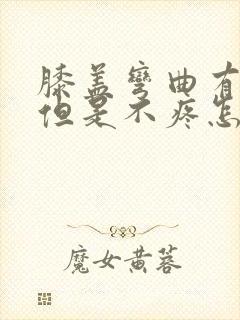 膝盖弯曲有
但是不疼怎
魔女黄蓉